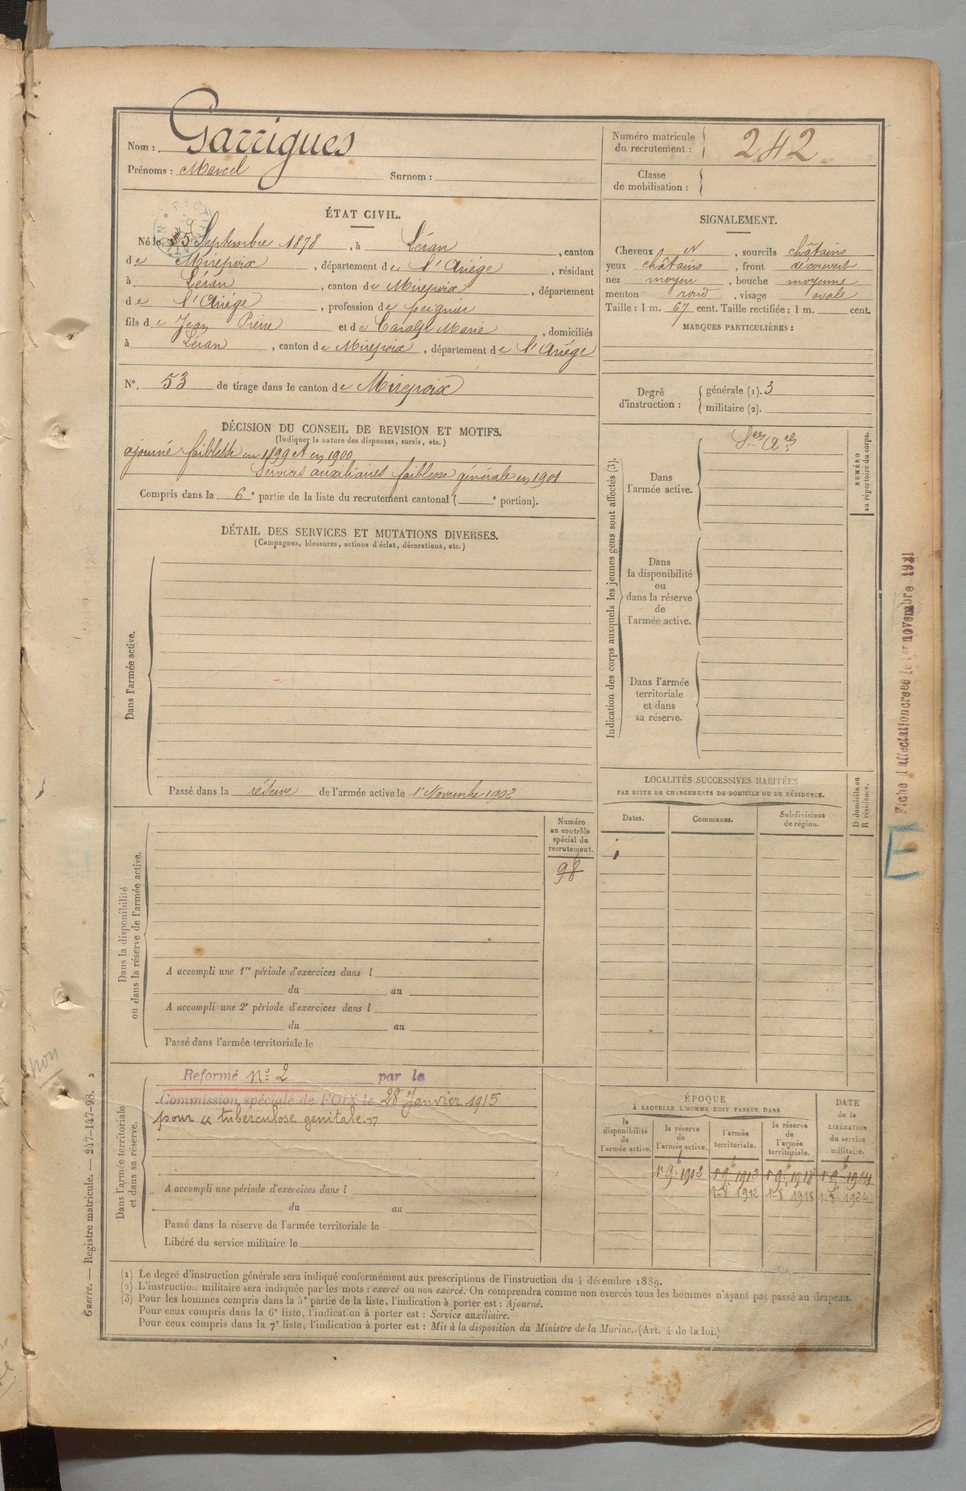 Nom : Garrigues
Prénoms : Marcel Surnom :
Numéro matricule du recrutement : 242
Classe de mobilisation :
ÉTAT CIVIL.
Né le 15 Septembre 1878, à Léran, canton
de Mirepoix, département de l'Ariège, résidant
à Léran, canton de Mirepoix, département
de l'Ariège, profession de peignier
fils de Jean Pierre et de Marie, domiciliés
à Léran, canton de Mirepoix, département de l'Ariège
N°. 53 de tirage dans le canton de Mirepoix
SIGNALEMENT.
Cheveux N, sourcils châtains
yeux châtains, front découvert
nez moyen, bouche moyenne
menton rond, visage ovale
Taille : 1 m. 67 cent. Taille rectifiée : 1 m. cent.
MARQUES PARTICULIÈRES :
Degré d'instruction : générale (1). 3
militaire (2).
DÉCISION DU CONSEIL DE REVISION ET MOTIFS.
(Indiquer la nature des dispenses, sursis, etc.)
ajourné faiblesse en 1899 et en 1900
Services auxiliaires faiblesse générale en 1901
Compris dans la 6e partie de la liste du recrutement cantonal ( e portion).
DÉTAIL DES SERVICES ET MUTATIONS DIVERSES.
(Campagnes, blessures, actions d'éclat, décorations, etc.)
Dans l'armée active.
Passé dans la réserve de l'armée active le 1er Novembre 1902
Indication des corps auxquels les jeunes gens sont affectés (3).
Dans l'armée active.
Dans la disponibilité ou dans la réserve de l'armée active.
Dans l'armée territoriale et dans sa réserve.
NUMÉRO au répertoire du corps.
LOCALITÉS SUCCESSIVES HABITÉES
PAR SUITE DE CHANGEMENTS DE DOMICILE OU DE RÉSIDENCE.
Dates.
Communes.
Subdivisions de région.
D domicile ou R résidence.
Dans la disponibilité ou dans la réserve de l'armée active.
Numéro au contrôle spécial du recrutement.
98
A accompli une 1re période d'exercices dans l
du au
A accompli une 2e période d'exercices dans l
du au
Passé dans l'armée territoriale le
Dans l'armée territoriale et dans sa réserve.
Reformé n° 2 par la
Commission spéciale de FOIX le 28 Janvier 1915
pour « tuberculose genitale »
A accompli une période d'exercices dans l
du au
Passé dans la réserve de l'armée territoriale le
Libéré du service militaire le
ÉPOQUE
À LAQUELLE L'HOMME DOIT PASSER DANS
la disponibilité de l'armée active.
la réserve de l'armée active.
l'armée territoriale.
la réserve de l'armée territoriale.
DATE de la LIBÉRATION du service militaire.
(1) Le degré d'instruction générale sera indiqué conformément aux prescriptions de l'instruction du 4 décembre 1889.
(2) L'instruction militaire sera indiquée par les mots : exercé ou non exercé. On comprendra comme non exercés tous les hommes n'ayant pas passé au drapeau.
(3) Pour les hommes compris dans la 5e partie de la liste, l'indication à porter est : Ajourné.
Pour ceux compris dans la 6e liste, l'indication à porter est : Service auxiliaire.
Pour ceux compris dans la 7e liste, l'indication à porter est : Mis à la disposition du Ministre de la Marine. (Art. 4 de la loi.)
Guerre. — Registre matricule. — 247-147-98. 2
non